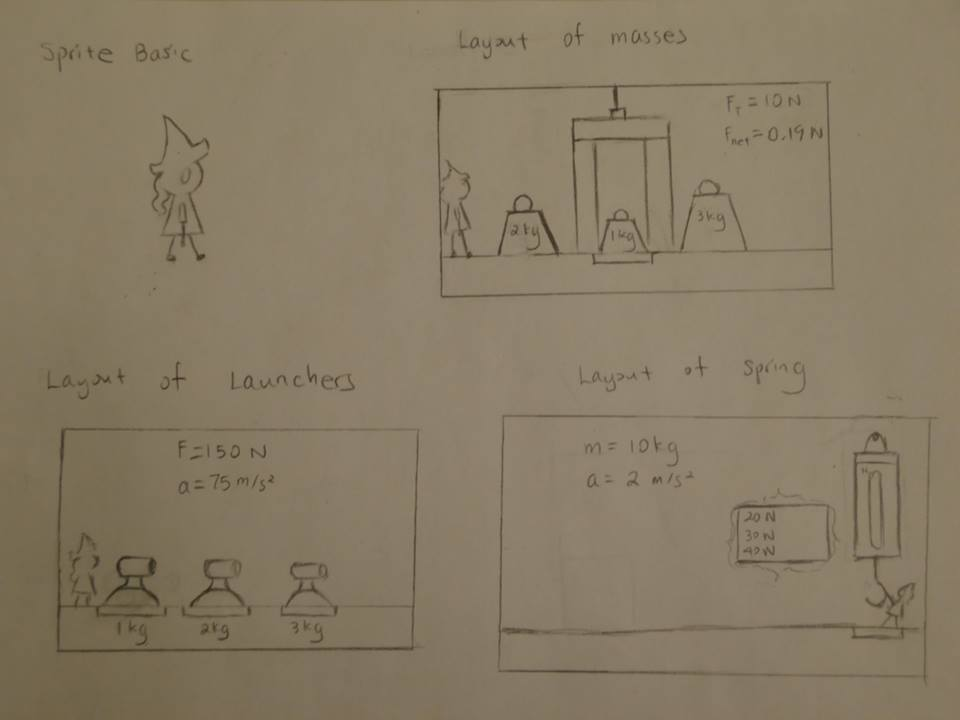 Sprite Basic
Layout of masses
F_T = 10 N
F_net = 0.19 N
2kg
1kg
3kg
Layout of Launchers
F = 150 N
a = 75 m/s²
1kg
2kg
3kg
Layout of Spring
m = 10 kg
a = 2 m/s²
20 N
30 N
40 N